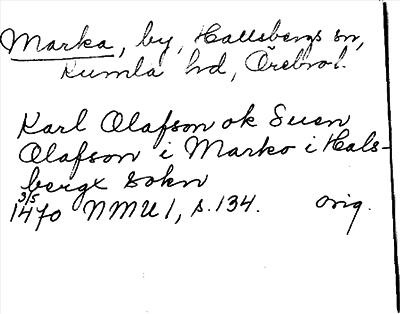 Marka, by, Hallsbergs sn,
Kumla hd, Örebro l.
Karl Olafson ok Suen
Olafson i Marko i Hals-
bergx sokn
3/5
1470 NMU 1, s. 134. orig.